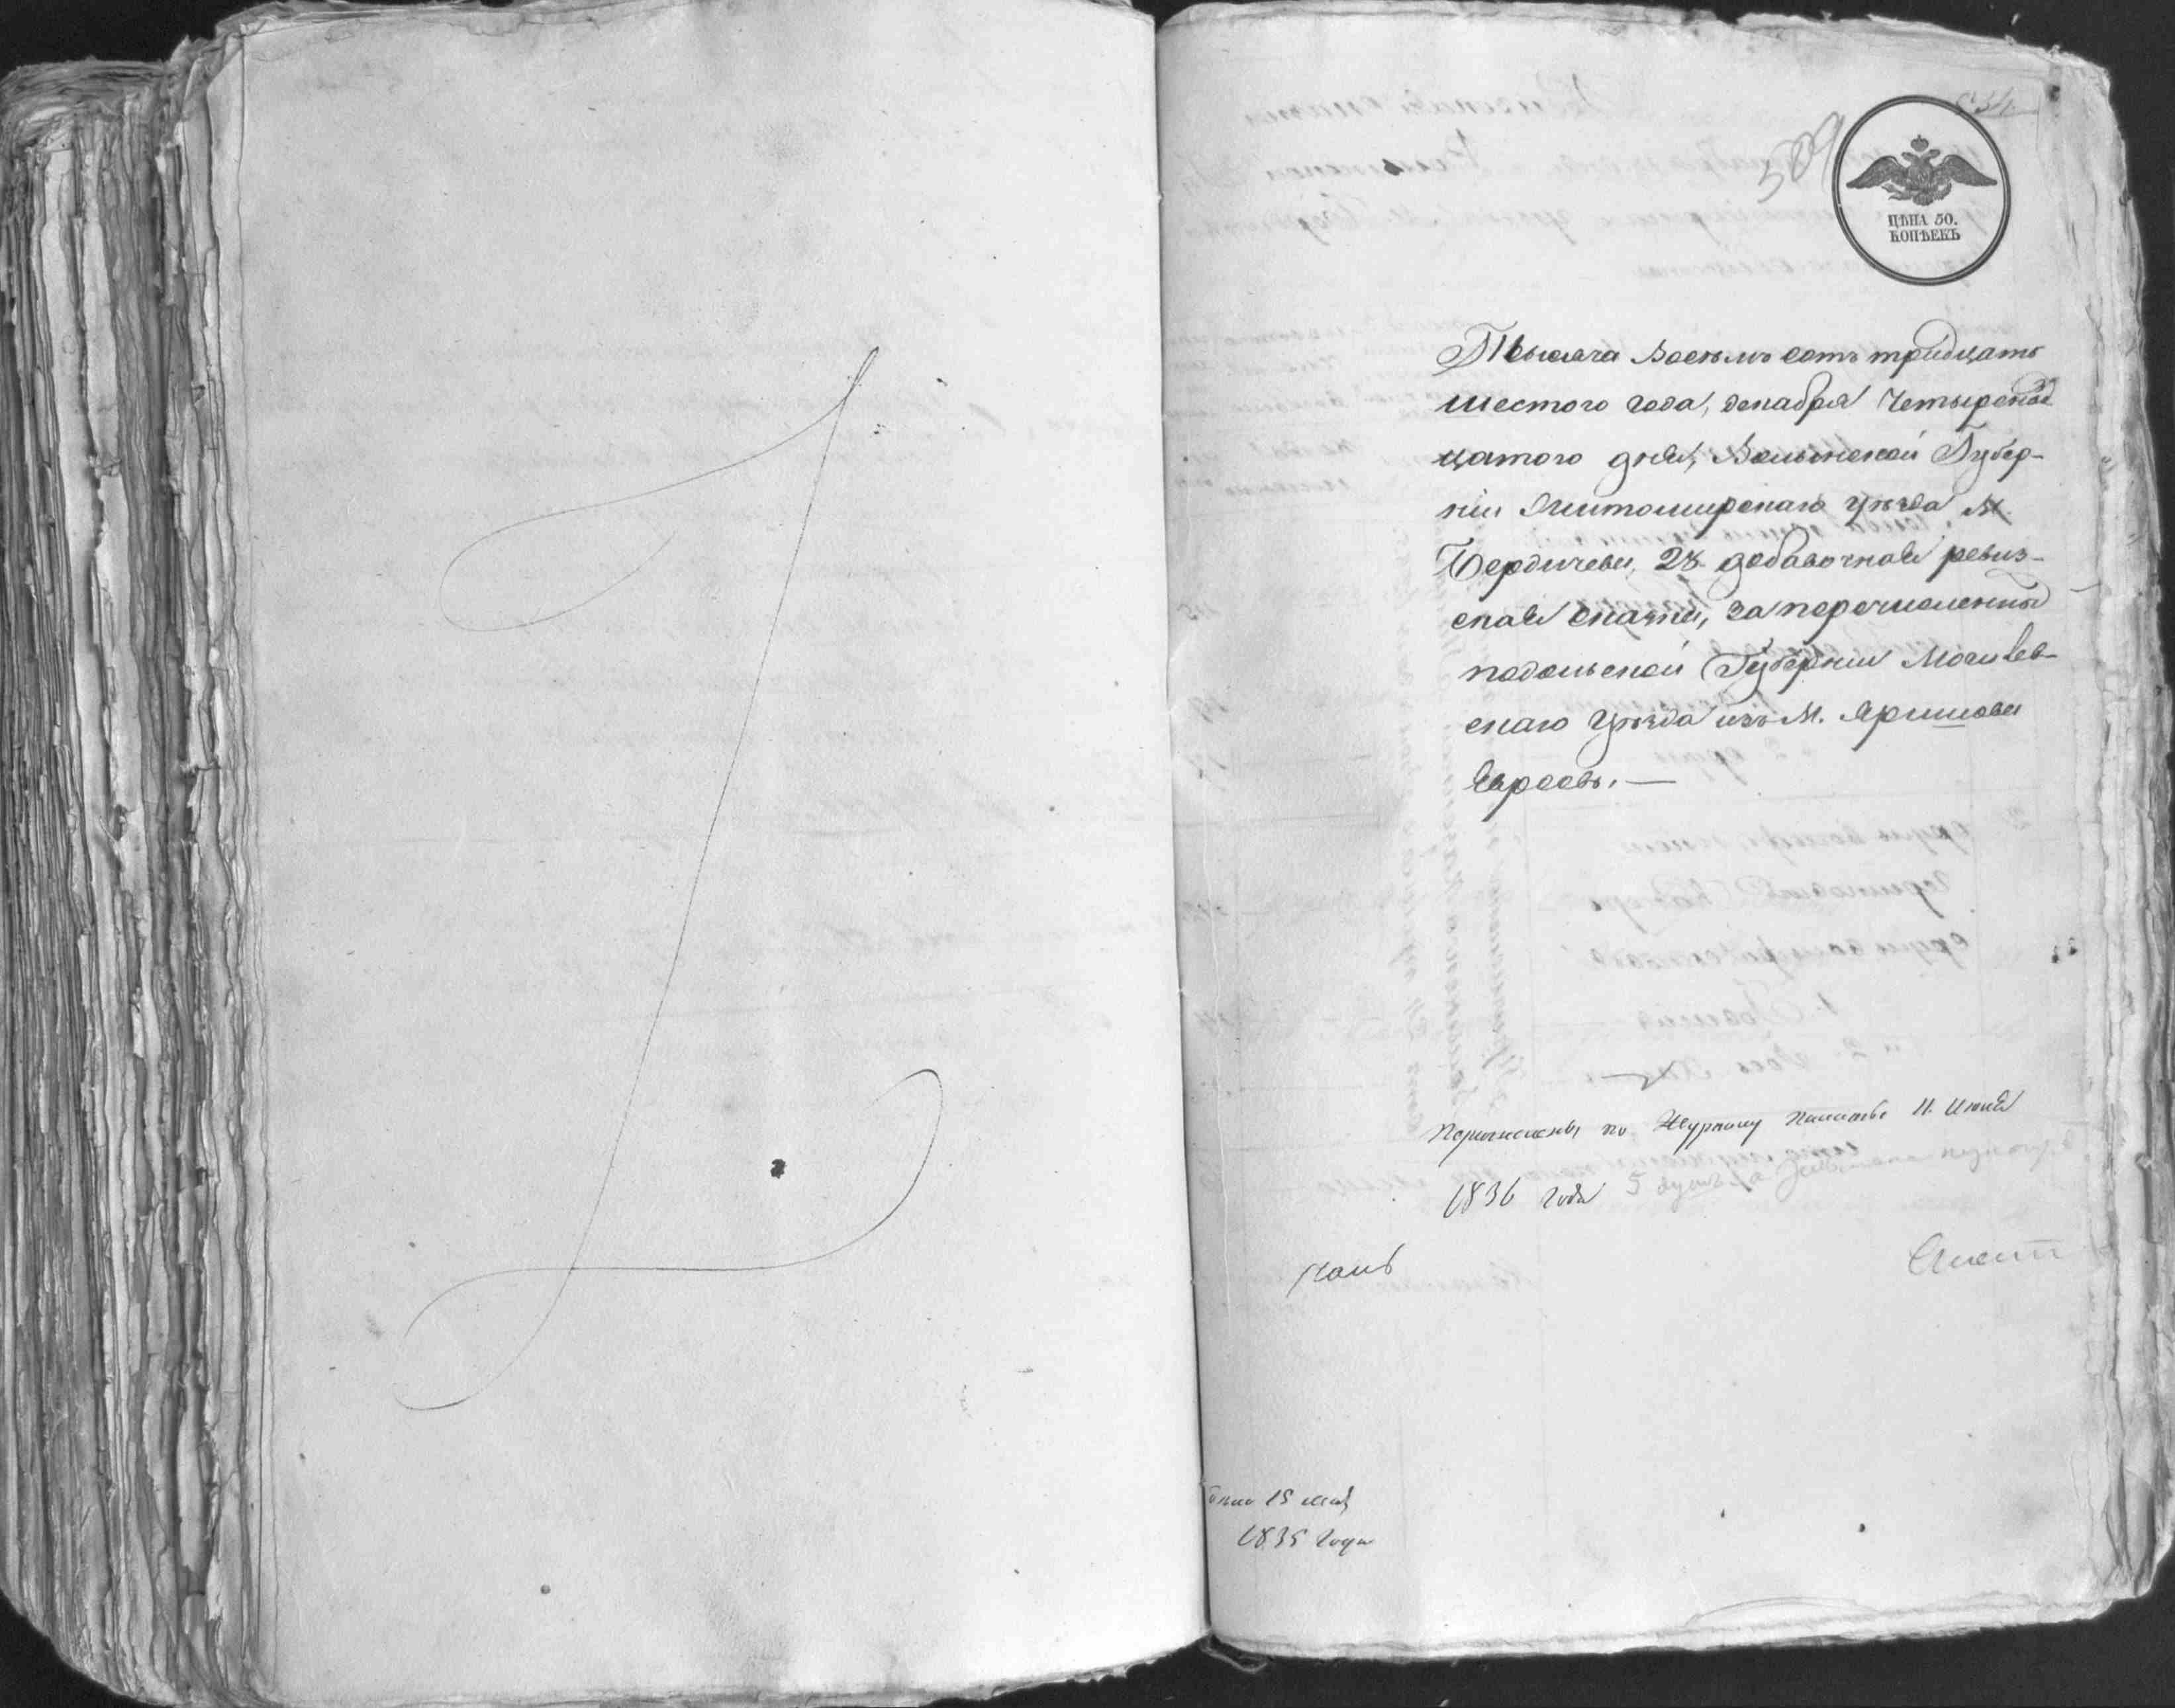 509
ЦѢНА 50.
КОПѢЕКЪ
Тысяча Восемь сотъ тридцать
шестого года, декабря Четырнад
цатого дня, Волынской Губер-
нии Житомирскаго уезда М.
Бердичева, 28 добавочная ревиз-
ская сказка, за перечисленны
подольской Губернии Могилев-
скаго уезда изъ М. Яришова
Евреевъ. —
Перечислены по Журналу Палаты 11. Июня
1836 года 5 душъ
15
1835 Года